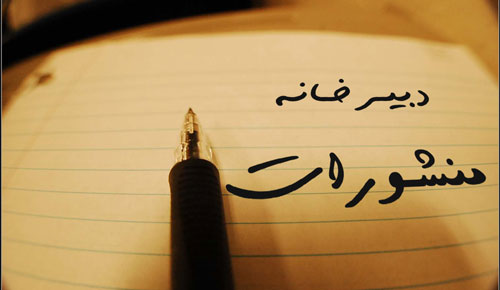 دبیرخانه
منشورات